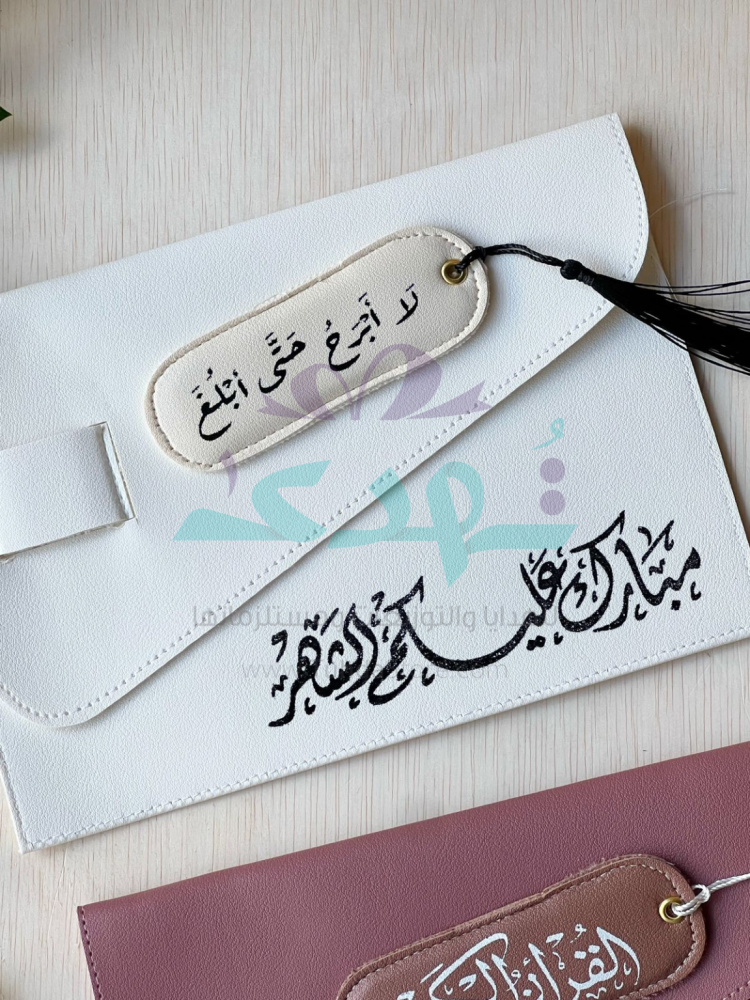 لَا أَبْرَحُ حَتَّى أَبْلُغَ
تُهدى
للهدايا والتوزيعات ومستلزماتها
مبارك عليكم الشهر
www.
القرآن الك